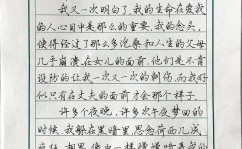 我又一次明白了,我的生命在爱我
的人心目中是那么的重要。我的念头,
使得经过了那么多沧桑和人生的父母
几乎崩溃,在女儿的面前,他们是不肯
设防的让我一次又一次的刺伤,而我好
似只有在丈夫的面前才会那个样子。
许多个夜晚,许多次午夜梦回的
时候,我躲在黑暗里,思念荷西几成